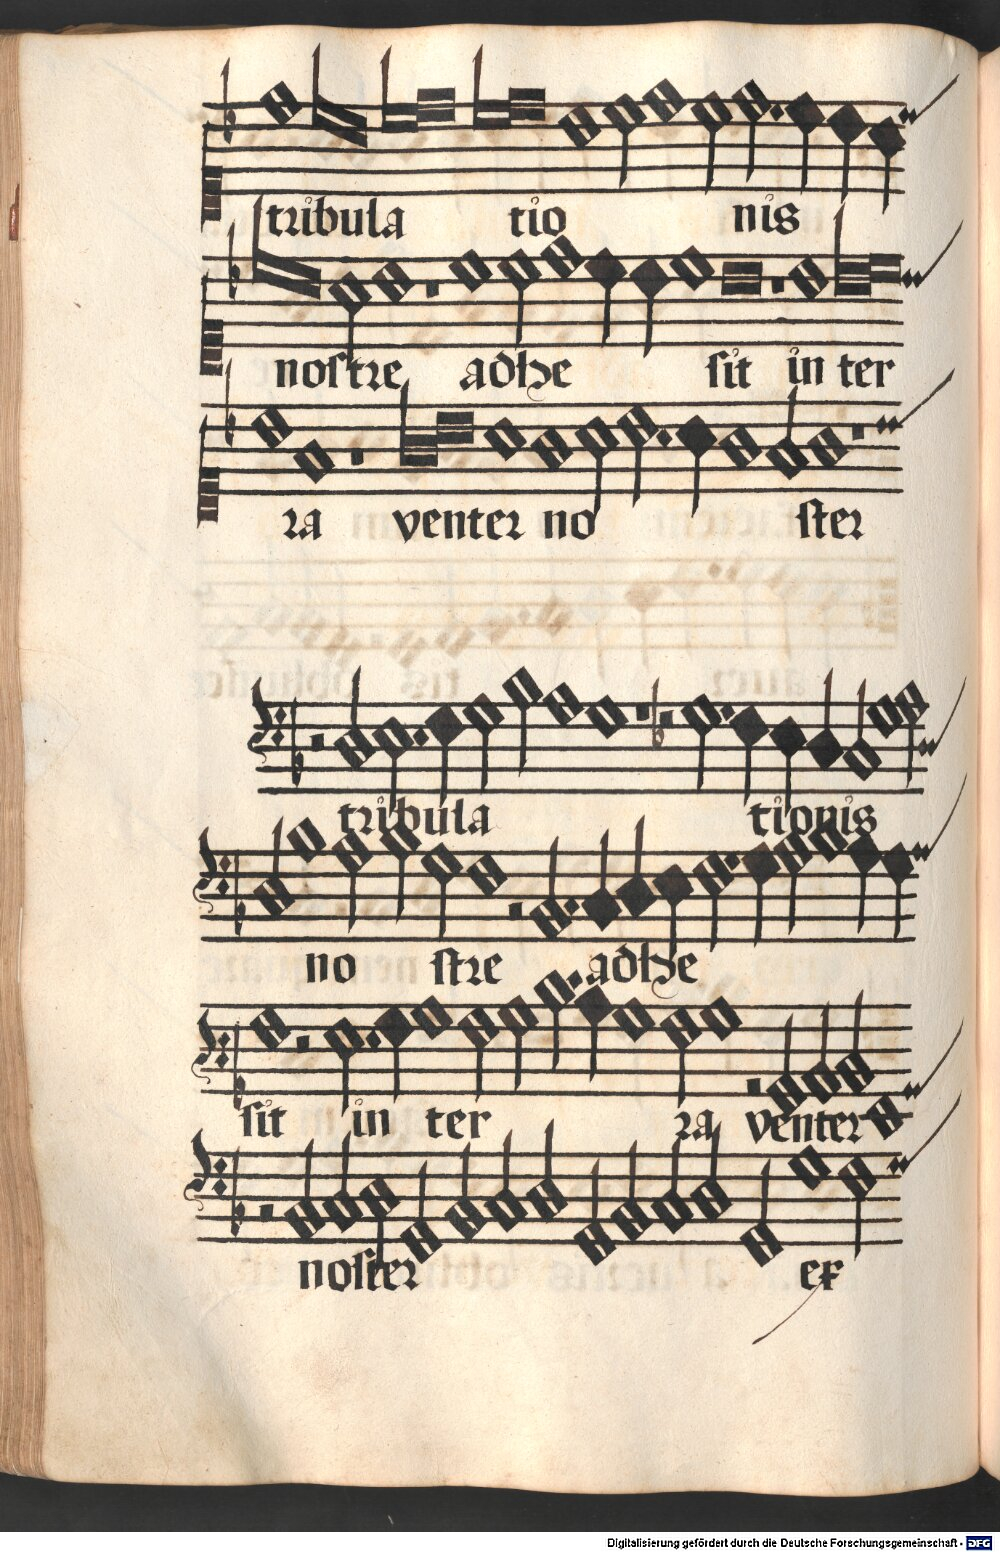 tribula tio nis
nostre adhe sit in ter
ra venter no ster
tribula tionis
no stre adhe
sit in ter ra venter
noster ex
Digitalisierung gefördert durch die Deutsche Forschungsgemeinschaft - DFG